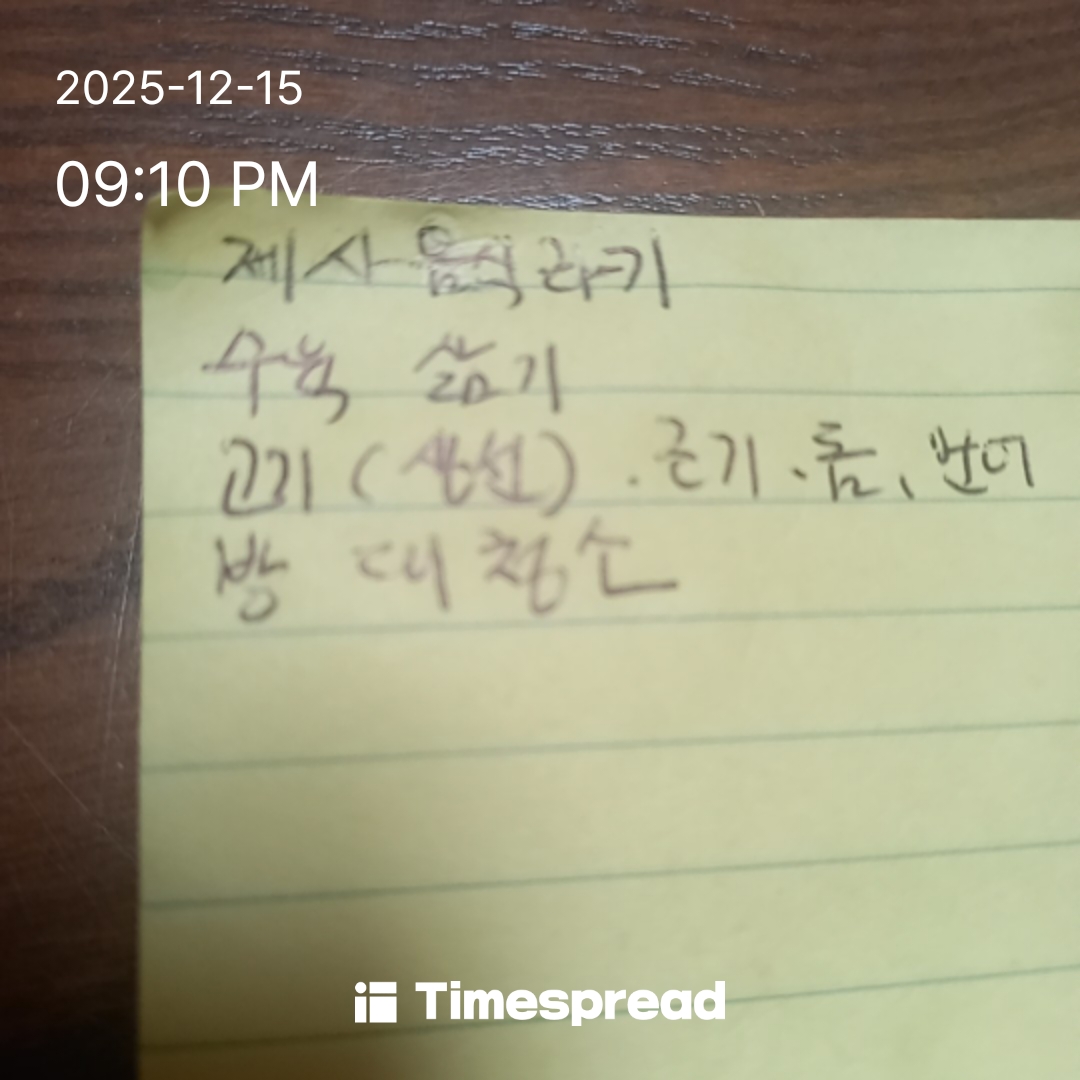 2025-12-15
09:10 PM
제사음식
수육 삶기
고기 (생선) . 돔,
방 대청소
Timespread